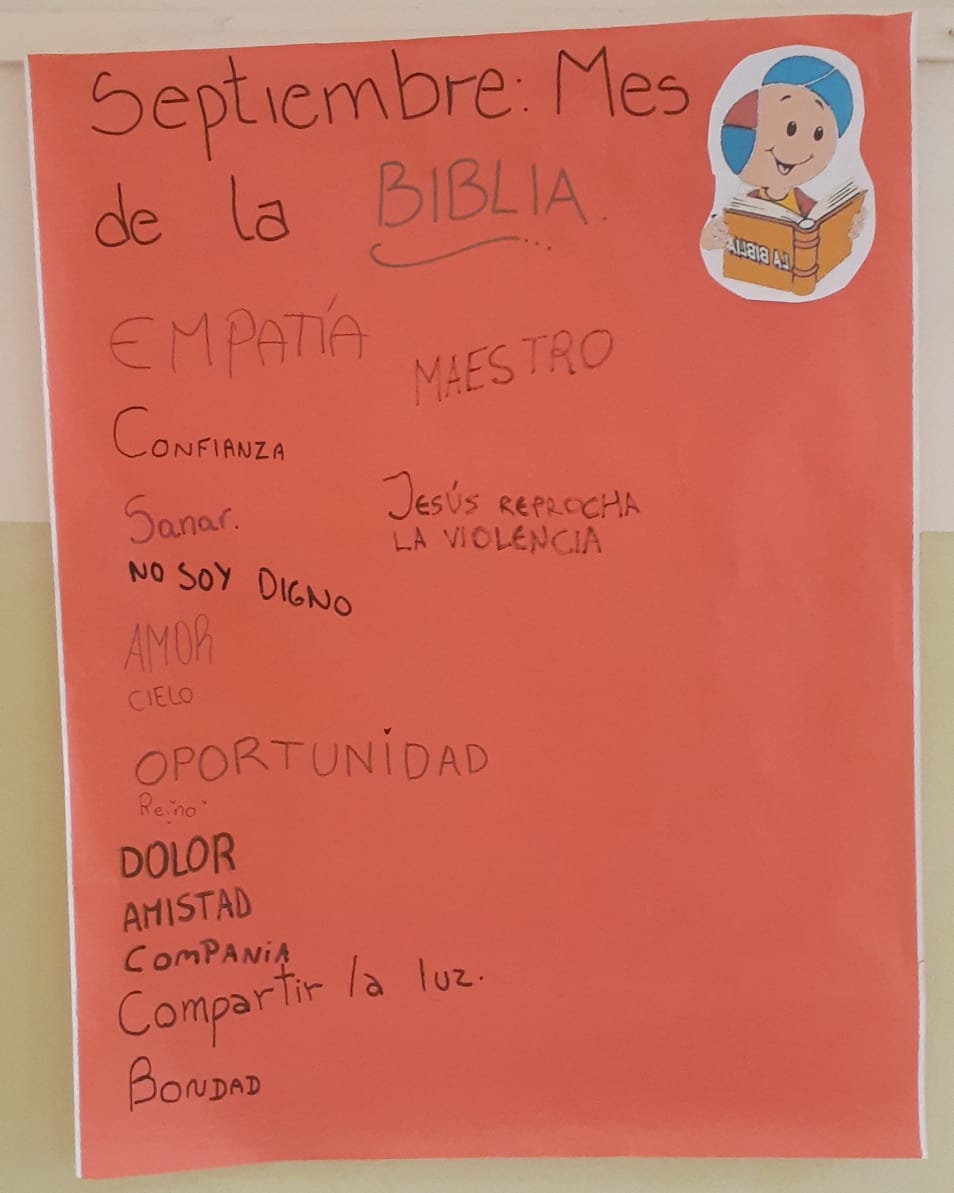 Septiembre: Mes
de la BIBLIA.
LA BIBLIA
EMPATÍA
MAESTRO
CONFIANZA
JESÚS REPROCHA
LA VIOLENCIA
Sanar.
NO SOY DIGNO
AMOR
CIELO
OPORTUNIDAD
Reino
DOLOR
AMISTAD
COMPANIA
Compartir la luz.
BONDAD